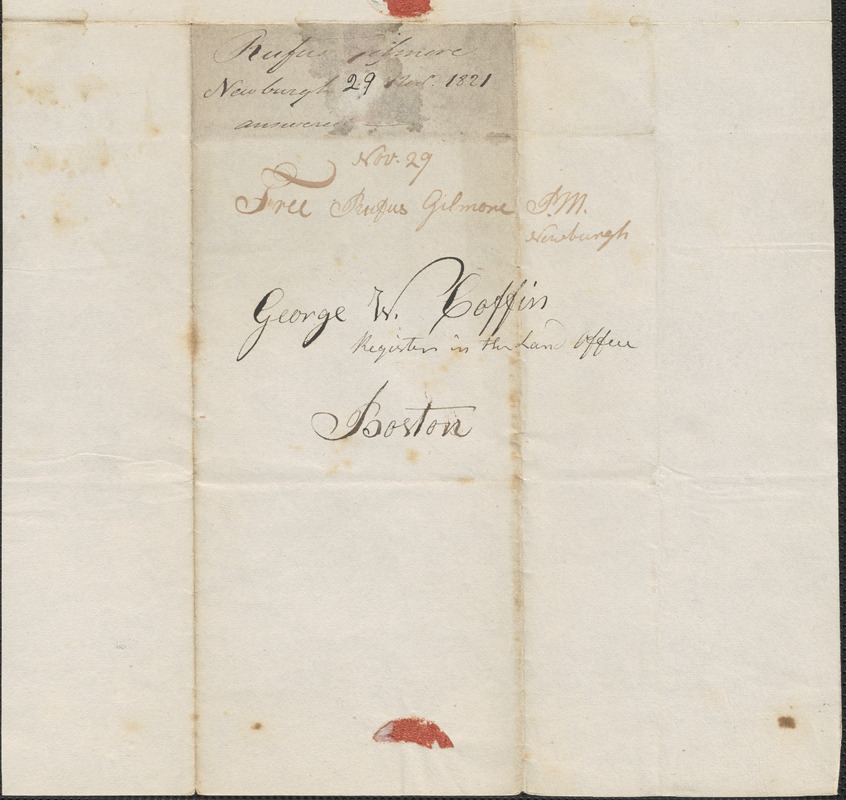 Rufus Gilmore
Newburgh 29 Nov. 1821
answered
Nov. 29
Free Rufus Gilmore P.M.
Newburgh
George W. Coffin
Register in the Land Office
Boston